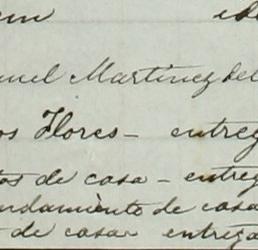 nuel Martinez del
os Flores - entreg
tos de casa - entreg
ndamiento de casa
de casa entrega